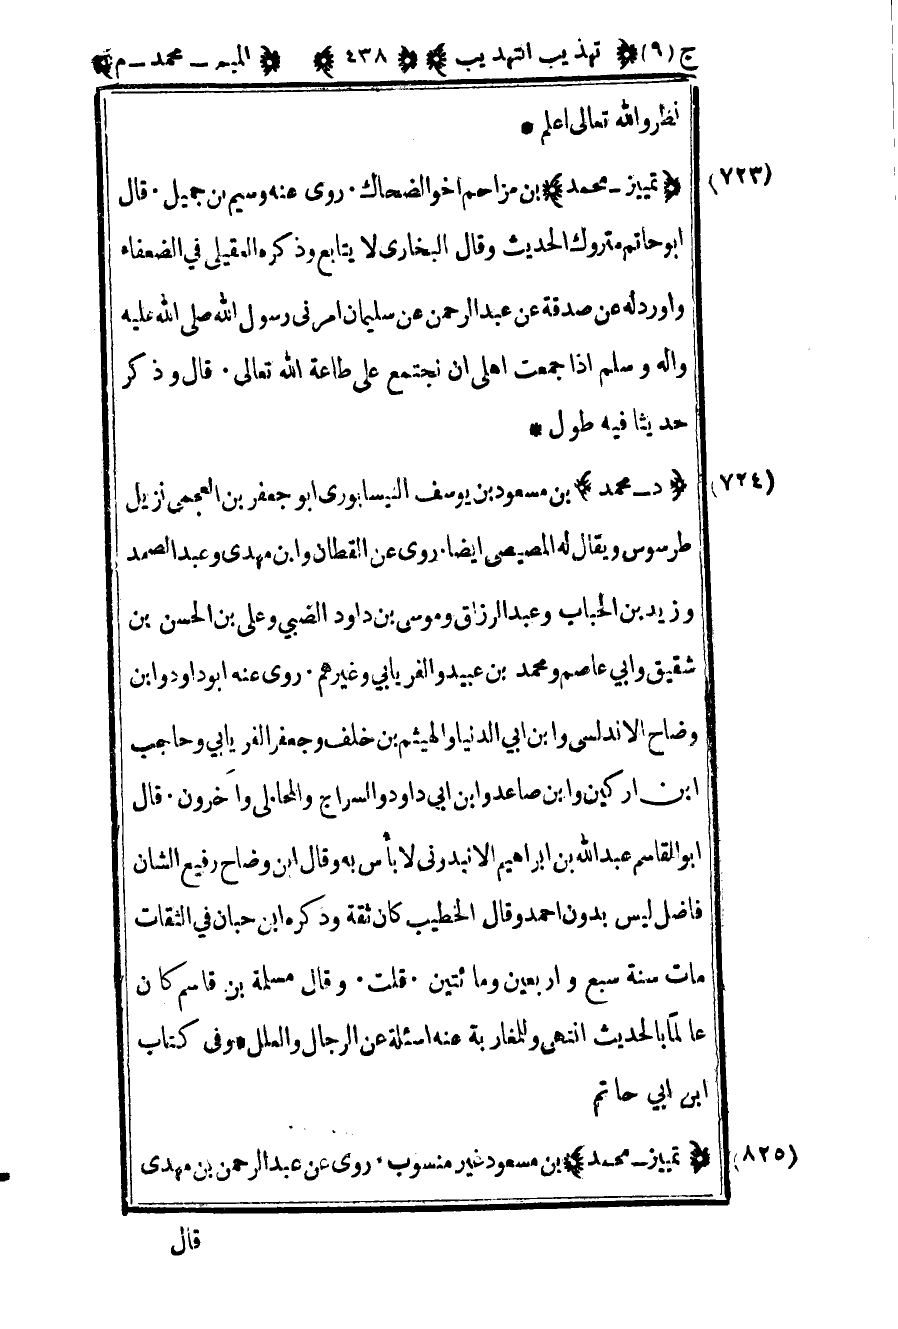 ج (٩) ﴿ تهذيب التهذيب ﴾ ﴿ ٤٣٨ ﴾ ﴿ الميم ـ محمد ـ م ﴾
نظر والله تعالى اعلم *
(٧٢٣) ﴿ تمييز ـ محمد ﴾ بن مزاحم اخو الضحاك ٠ روى عنه وسيم بن جميل ٠ قال
ابو حاتم متروك الحديث وقال البخارى لا يتابع وذكره العقيلى في الضعفاء
واورد له عن صدقة عن عبد الرحمن عن سليمان امرنى رسول الله صلى الله عليه
وآله و سلم اذا جمعت اهلى ان نجتمع على طاعة الله تعالى ٠ قال و ذكر
حديثا فيه طول *
(٧٢٤) ﴿ د ـ محمد ﴾ بن مسعود بن يوسف النيسابورى ابو جعفر بن العجمى نزيل
طرسوس ويقال له المصيصى ايضا ٠ روى عن القطان وابن مهدى وعبد الصمد
وزيد بن الحباب وعبد الرزاق وموسى بن داود الضبي وعلى بن الحسن بن
شقيق وابي عاصم ومحمد بن عبيد والفريابي وغيرهم ٠ روى عنه ابو داود وابن
وضاح الاندلسى وابن ابي الدنيا والهيثم بن خلف وجعفر الفريابي وحاجب
ابن اركين وابن صاعد وابن ابي داود والسراج والمحاملى وآخرون ٠ قال
ابو القاسم عبد الله بن ابراهيم الانبدونى لا بأس به وقال ابن وضاح رفيع الشان
فاضل ليس بدون احمد وقال الخطيب كان ثقة وذكره ابن حبان في الثقات
مات سنة سبع و اربعين ومائتين ٠ قلت ٠ وقال مسلمة بن قاسم كان
عالمًا بالحديث انتهى وللمغاربة عنه اسئلة عن الرجال والعلل * وفى كتاب
ابن ابي حاتم
(٨٢٥) ﴿ تمييز ـ محمد ﴾ بن مسعود غير منسوب ٠ روى عن عبد الرحمن بن مهدى
قال